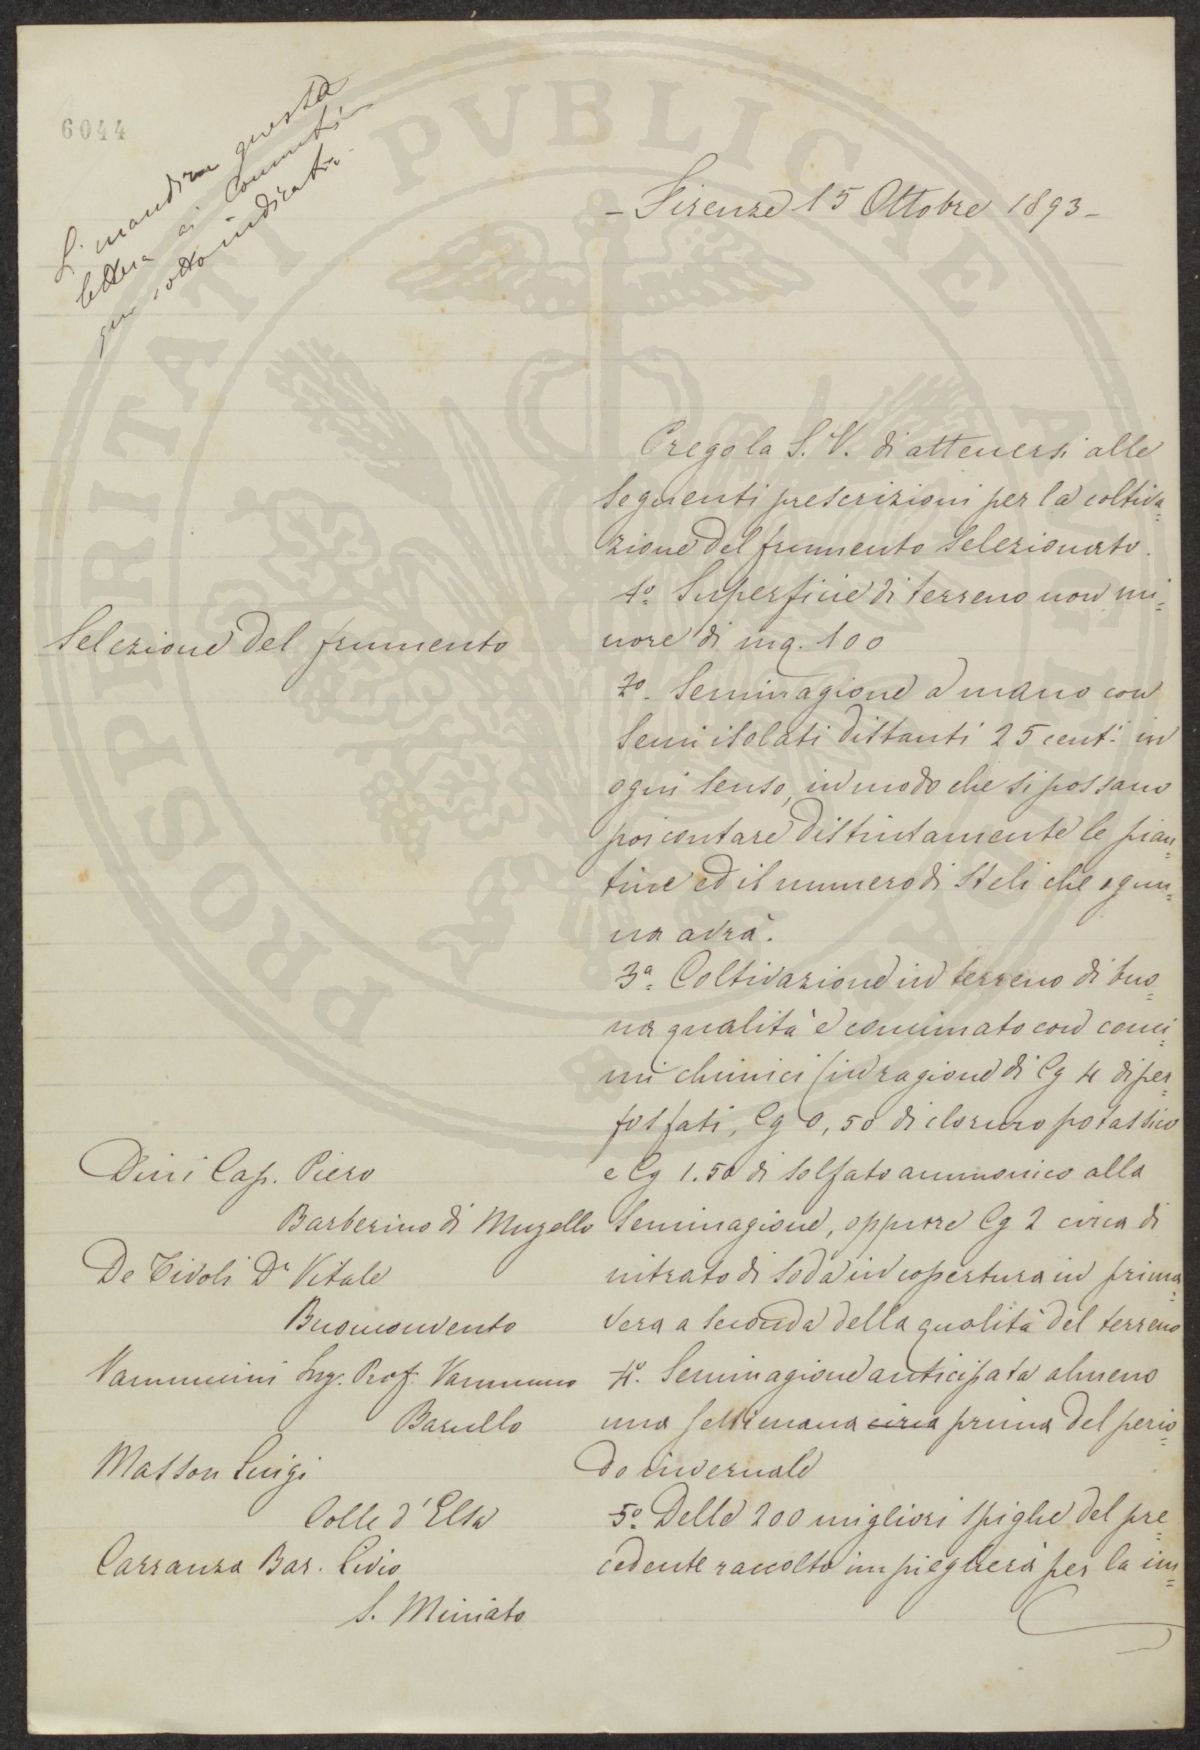 6044
Si mandi questa
lettera ai Comitati
qui sotto indicati.
- Firenze 15 Ottobre 1893 -
Prego la S. V. di attenersi alle
seguenti prescrizioni per la coltiva=
zione del frumento selezionato.
1º. Superficie di terreno non mi=
nore di mq. 100
2º. Seminagione a mano con
semi isolati distanti 25 centi. in
ogni senso, in modo che si possano
poi contare distintamente le pian=
tine ed il numero di steli che ognu=
na avrà.
3ª. Coltivazione in terreno di buo=
na qualità e concimato con conci=
mi chimici (in ragione di Cg 4 di per=
fosfati, Cg 0,50 di cloruro potassico
e Cg 1.50 di solfato ammonico alla
seminagione, oppure Cg 2 circa di
nitrato di soda in copertura in prima=
vera a seconda della qualità del terreno
4º. Seminagione anticipata almeno
una settimana circa prima del perio=
do invernale
5º. Delle 200 migliori spighe del pre=
cedente raccolto impiegherà per la im=
Selezione del frumento
Dini Cap. Piero
Barberino di Mugello
De Tivoli Dr Vitale
Buonconvento
Vannuccini Ing. Prof. Vannuccio
Barullo
Masson Luigi
Colle d'Elsa
Carranza Bar. Livio
S. Miniato
PROSPERITATI PVBLICAE AVGENDAE